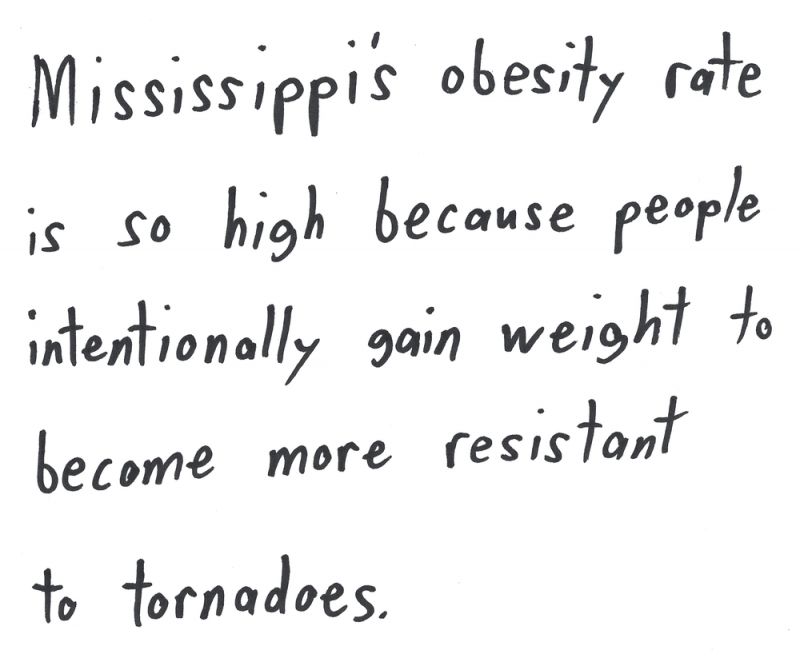 Mississippi's obesity rate
is so high because people
intentionally gain weight to
become more resistant
to tornadoes.